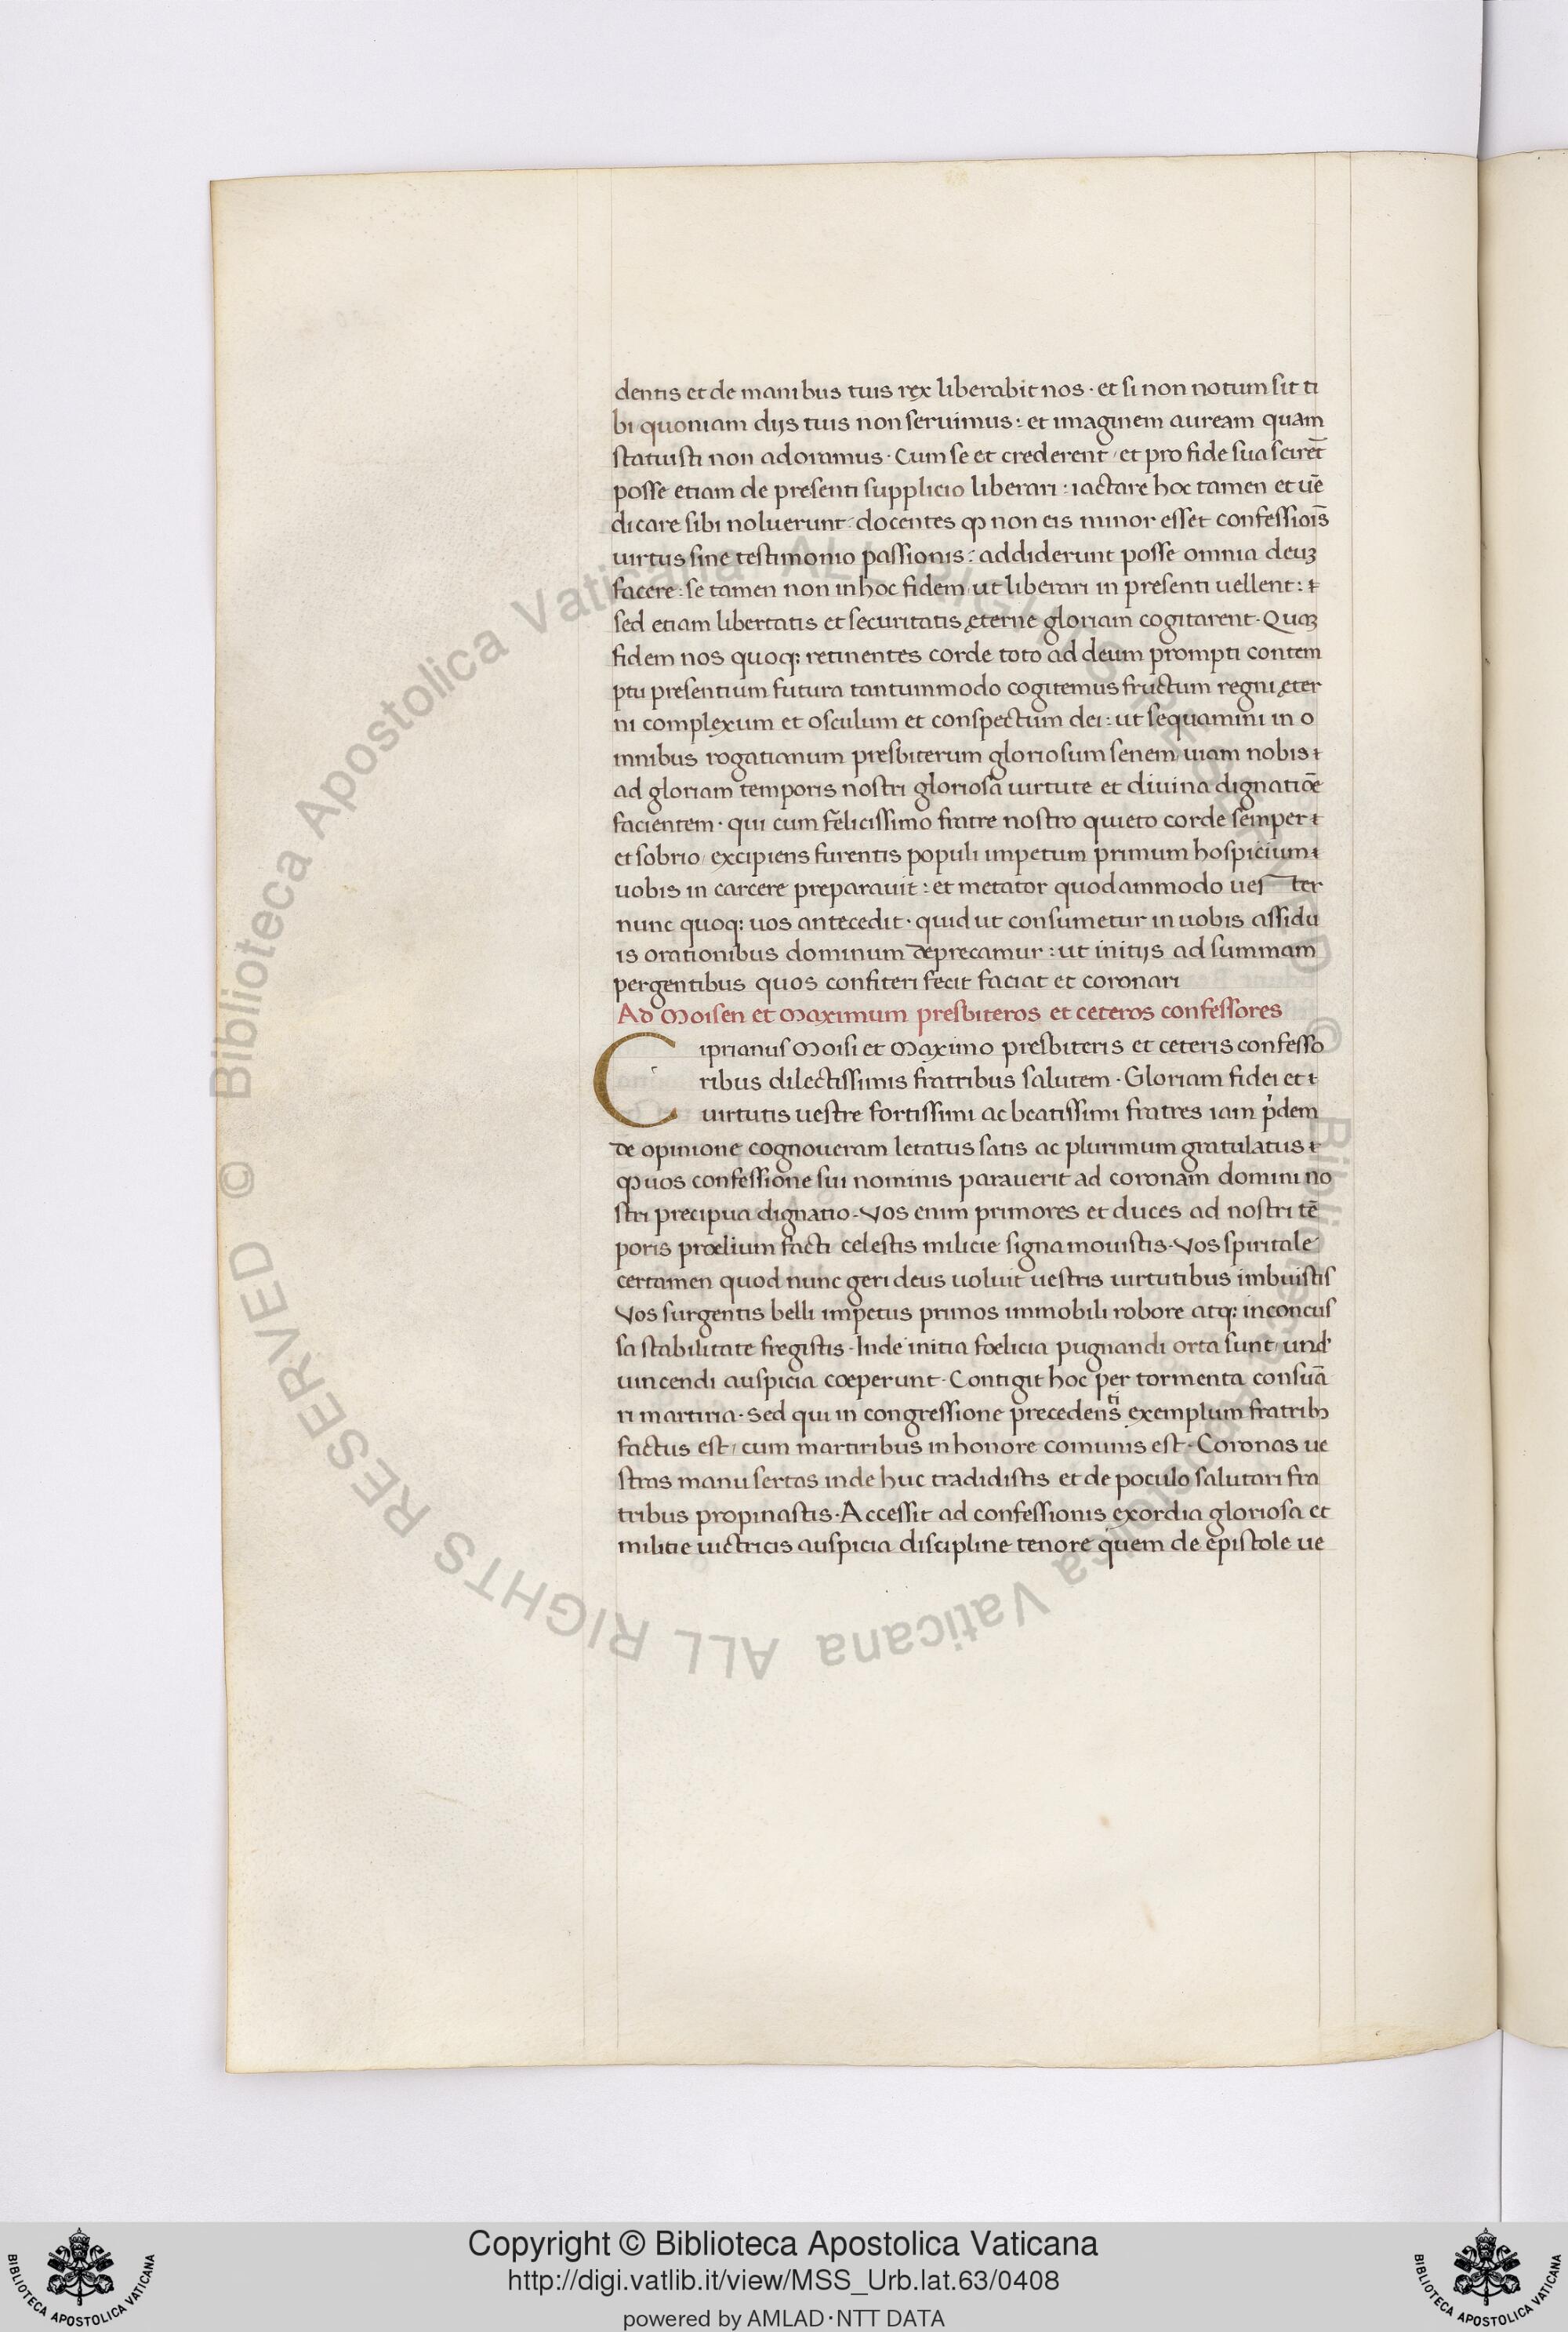 dentis et de manibus tuis ręx liberabit nos · et si non notum sit ti
bi quoniam dijs tuis non seruimus : et imaginem auream quam
statuisti non adoramus · Cum se et crederent / et pro fide sua sciret̄
posse etiam de presenti supplicio liberari : iactare hoc tamen et uē
dicare sibi noluerunt : docentes ꝙ non eis minor esset confessiois̄
uirtus sine testimonio passionis : addiderunt posse omnia deuꝫ
facere : se tamen non in hoc fidem / ut liberari in presenti uellent :
sed etiam libertatis et securitatis ęterne gloriam cogitarent · Quaꝫ
fidem nos quoq: retinentes corde toto ad deum prompti contem
ptu presentium futura tantummodo cogitemus fructum regni ęter
ni complęxum et osculum et conspectum dei : ut sequamini in o
mnibus rogatianum presbiterum gloriosum senem / uiam nobis
ad gloriam temporis nostri gloriosa uirtute et diuina dignatiōe
facientem · qui cum felicissimo fratre nostro quieto corde semper
et sobrio / excipiens furentis populi impetum primum hospicium
uobis in carcere preparauit : et metator quodammodo uester
nunc quoq: uos antecedit · quid ut consumetur in uobis assidu
is orationibus dominum deprecamur : ut initijs ad summam
pergentibus quos confiteri fecit faciat et coronari
Ad Moisen et Maximum presbiteros et ceteros confessores
Ciprianus Moisi et Maximo presbiteris et ceteris confesso
ribus dilectissimis fratribus salutem · Gloriam fidei et
uirtutis uestre fortissimi ac beatissimi fratres iam p̍dem
de opinione cognoueram letatus satis ac plurimum gratulatus
ꝙ uos confessione sui nominis parauerit ad coronam domini no
stri precipua dignatio · Vos enim primores et duces ad nostri tē
poris prœlium facti celestis milicie signa mouistis · Vos spiritale
certamen quod nunc geri deus uoluit uestris uirtutibus imbuistis
Vos surgentis belli impetus primos immobili robore atq: inconcus
sa stabilitate fregistis · Inde initia fœlicia pugnandi orta sunt / und'
uincendi auspicia cœperunt · Contigit hoc per tormenta consūa
ri martiria · Sed qui in congressione precedens ti exemplum fratribꝫ
factus est / cum martiribus in honore comunis est · Coronas ue
stras manu sertas inde huc tradidistis et de poculo salutari fra
tribus propinastis · Accessit ad confessionis exordia gloriosa et
militie uictricis auspicia discipline tenore quem de epistole ue
Copyright © Biblioteca Apostolica Vaticana
http://digi.vatlib.it/view/MSS_Urb.lat.63/0408
powered by AMLAD·NTT DATA
BIBLIOTECA APOSTOLICA VATICANA
BIBLIOTECA APOSTOLICA VATICANA
© Biblioteca Apostolica Vaticana ALL RIGHTS RESERVED
© Biblioteca Apostolica Vaticana ALL RIGHTS RESERVED